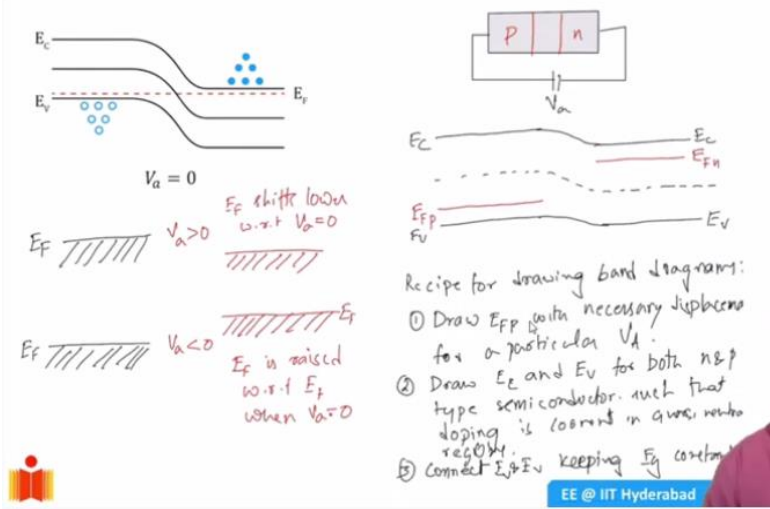 E_C
E_V
E_F
V_a = 0
E_F shifts lower
w.r.t V_a=0
E_F
V_a>0
E_F
V_a<0
E_F
E_F is raised
w.r.t E_F
when V_a=0
p n
V_a
E_C
E_C
E_Fn
E_Fp
E_V
E_V
Recipe for drawing band diagrams:
① Draw E_FP with necessary displaceme
for a particular V_A.
② Draw E_C and E_V for both n & p
type semiconductor. such that
doping is correct in quasi neutra
region.
③ Connect E_c & E_v keeping E_g constan
EE @ IIT Hyderabad